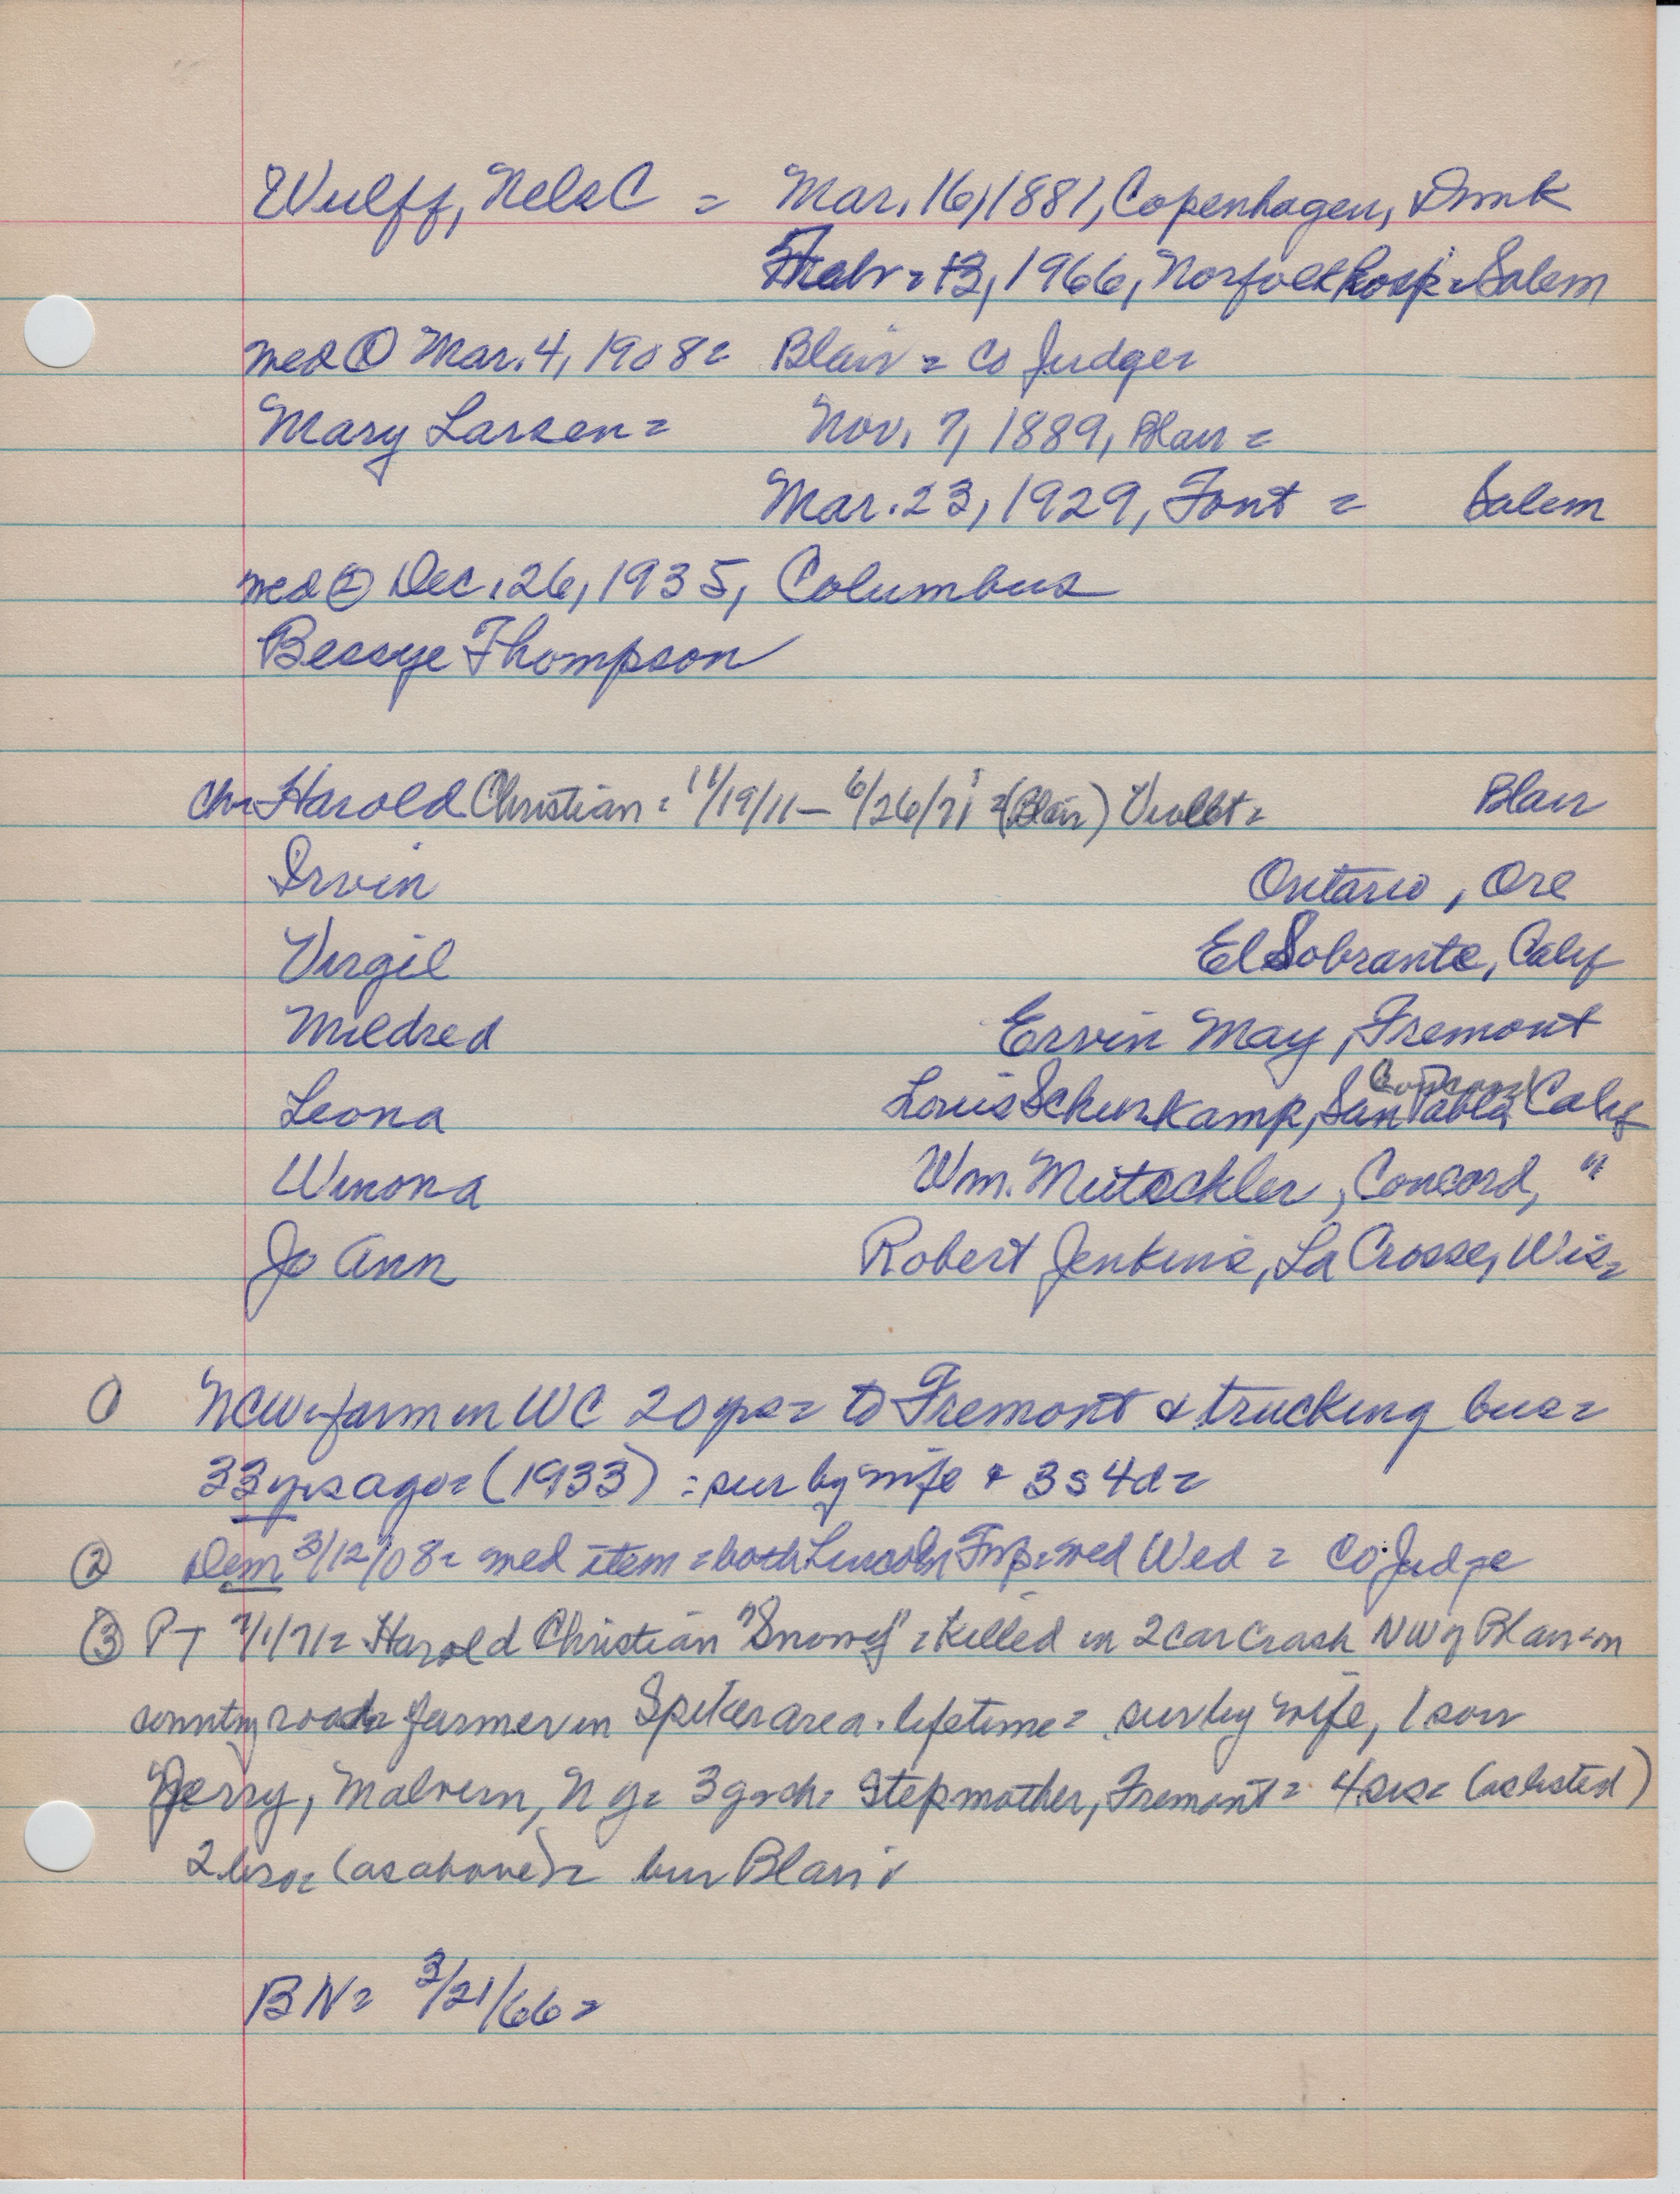 Wulff, Nels C = Mar. 16, 1881, Copenhagen, Dnmk
1966, Norfolk hosp = Salem
med ① Mar. 4, 1908 = Blair = Co Judge =
Mary Larsen = Nov. 7, 1889, Blair =
Mar. 23, 1929, Font = Salem
med ② Dec. 26, 1935, Columbus
Bessye Thompson
ch = Harold Christian = 11/19/11 – 6/26/71 = (Blair) Violet = Blair
Irvin Ontario, Ore
Virgil El Sobrante, Calif
Mildred Ervin May, Fremont
Leona Louis Schurkamp, San Pablo, Calif
Winona Wm. Concord, "
Jo Ann Robert Jenkins, La Crosse, Wis =
① NCW = farm in WC 20 yrs = to Fremont & trucking bus =
33 yrs ago = (1933) = sur by wife & 3s 4d =
② Dem 3/12/08 = med item = both Lincoln Twp = med Wed = Co. Judge
③ PT 7/1/71 = Harold Christian "Snowy" = killed in 2 car crash NW of Blair = on
country road = farmer in Spiker area = lifetime = sur by wife, 1 son
Jerry, Malvern, N Y = 3 grch = Stepmother, Fremont = 4 sis = (as listed)
2 bro = (as above) = bur Blair
BN = 3/21/66 =